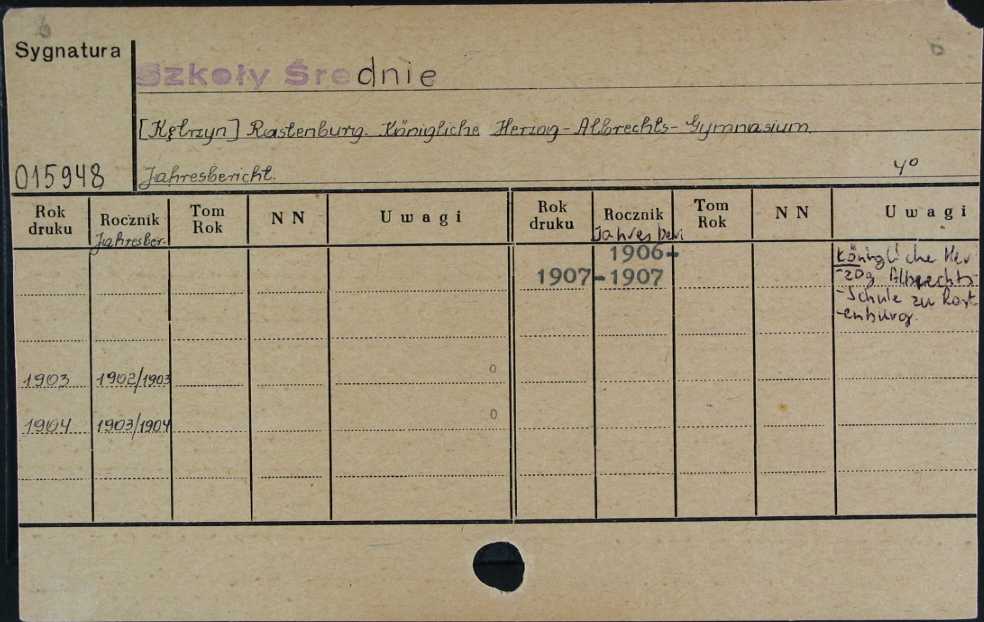 6
Sygnatura
Szkoły Średnie
[Kętrzyn] Rastenburg. Königliche Herzog-Albrechts-Gymnasium.
015948 Jahresbericht. 4º
Rok druku Rocznik Tom Rok NN Uwagi Rok druku Rocznik Tom Rok NN Uwagi
Jahresber. Jahresberi
1906-
1907-1907
Königliche Her
-zog Albrechts
-Schule zu Rast
-enburg.
1903 1902/1903 o
1904 1903/1904 o